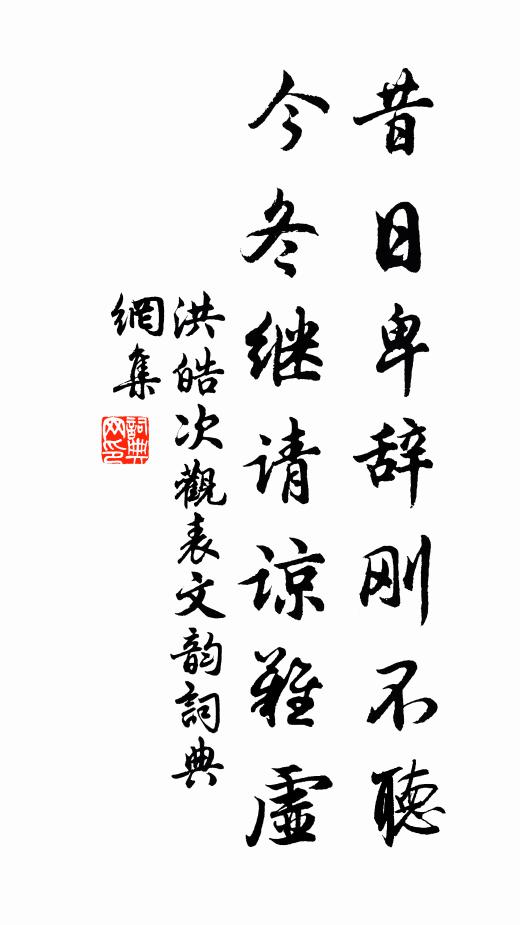 昔日卑辞刚不聽
今冬继请谅難虚
洪皓次觀表文韵詞典
網集
詞典
网印